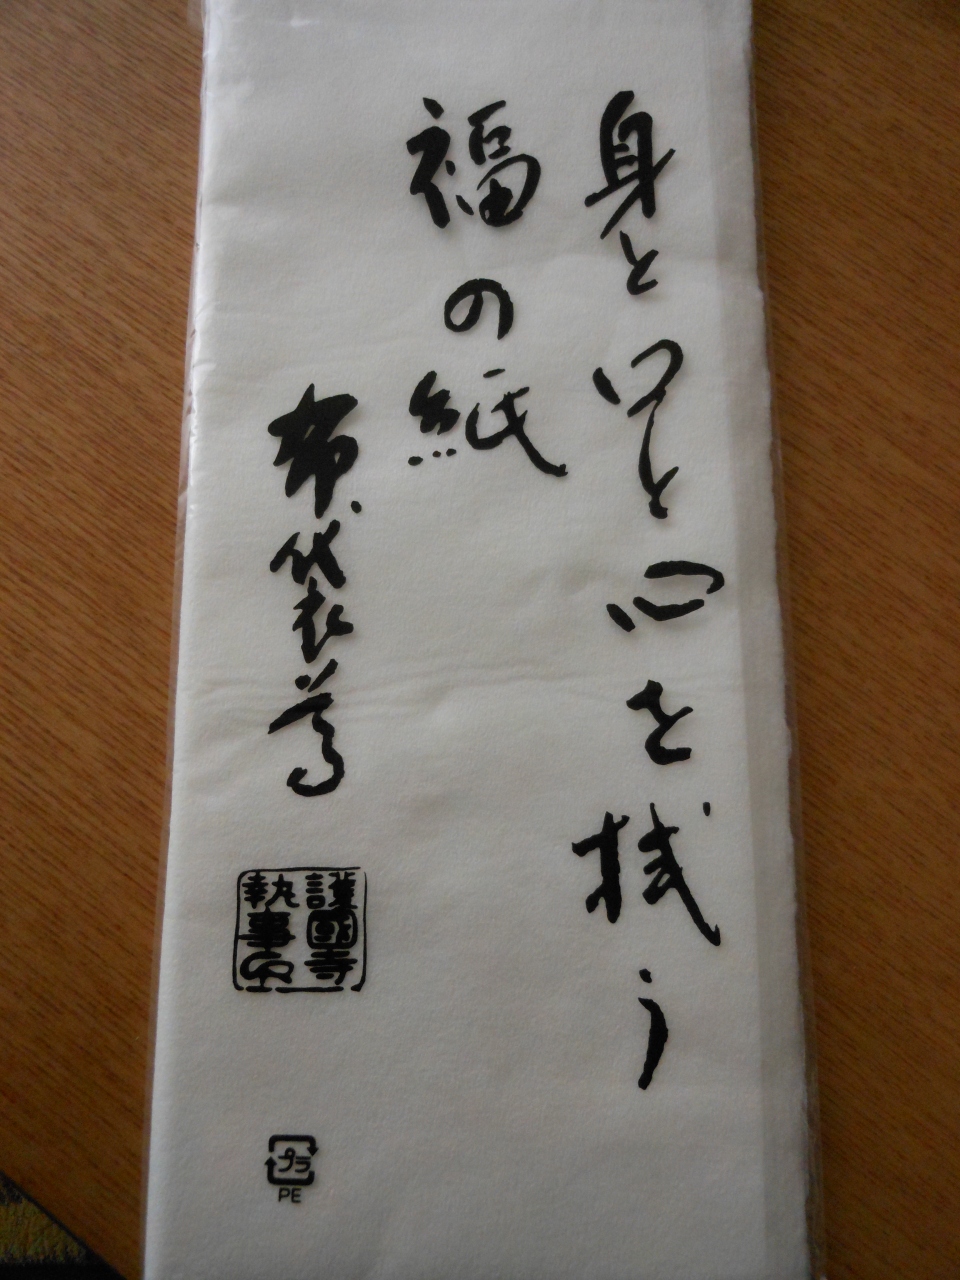 身と口と心を拭う
福の紙
布袋尊
護國寺
執事印
プラ
PE